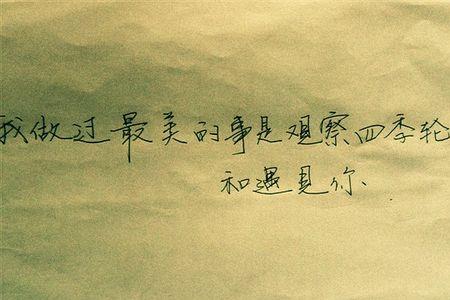 我做过最美的事是观察四季轮
和遇见你、